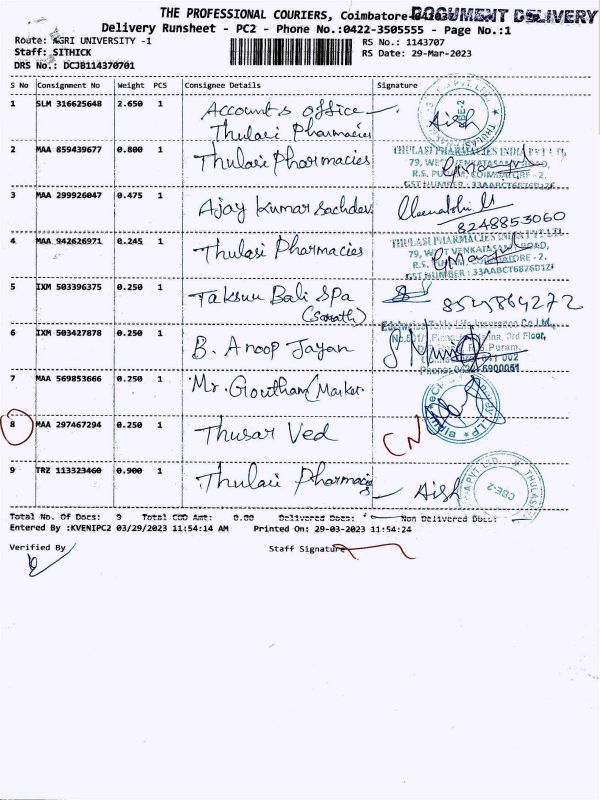 THE PROFESSIONAL COURIERS, Coimbatore-641037
DOCUMENT DELIVERY
Delivery Runsheet - PC2 - Phone No.:0422-3505555 - Page No.:1
Route: AGRI UNIVERSITY -1
RS No.: 1143707
Staff: SITHICK
RS Date: 29-Mar-2023
DRS No.: DCJB114370701
S No Consignment No Weight PCS Consignee Details Signature
1 SLM 316625648 2.650 1 Accounts office
Thulasi Pharmacies Aish
CBE-2
2 MAA 859439677 0.800 1 Thulasi Pharmacies
THULASI PHARMACIES INDIA PVT LTD,
79, WEST VENKATASAMY ROAD,
R.S. PURAM, COIMBATORE - 2.
GST NUMBER : 33AABCT6876D1ZF
3 MAA 299926047 0.475 1 Ajay Kumar Sachdev
8248853060
4 MAA 942626971 0.245 1 Thulasi Pharmacies
THULASI PHARMACIES INDIA PVT LTD,
79, WEST VENKATASAMY ROAD,
R.S. PURAM, COIMBATORE - 2.
GST NUMBER : 33AABCT6876D1ZF
5 IXM 503396375 0.250 1 Taksuu Bali Spa
(Sarath)
6 IXM 503427878 0.250 1 B. Anoop Jayan
Edelweiss Tokio Life Insurance Co.Ltd.,
3rd Floor,
R.S. Puram,
641 002
Phone: 0422 6900051
7 MAA 569853666 0.250 1 Mr. Goutham (Marker
8 MAA 297467294 0.250 1 Thusar Ved CN
9 TRZ 113323460 0.900 1 Thulasi Pharmacies Aish
CBE-2
Total No. Of Docs: 9 Total COD Amt: 0.00 Delivered Docs: Non Delivered Docs:
Entered By :KVENIPC2 03/29/2023 11:54:14 AM Printed On: 29-03-2023 11:54:24
Verified By Staff Signature